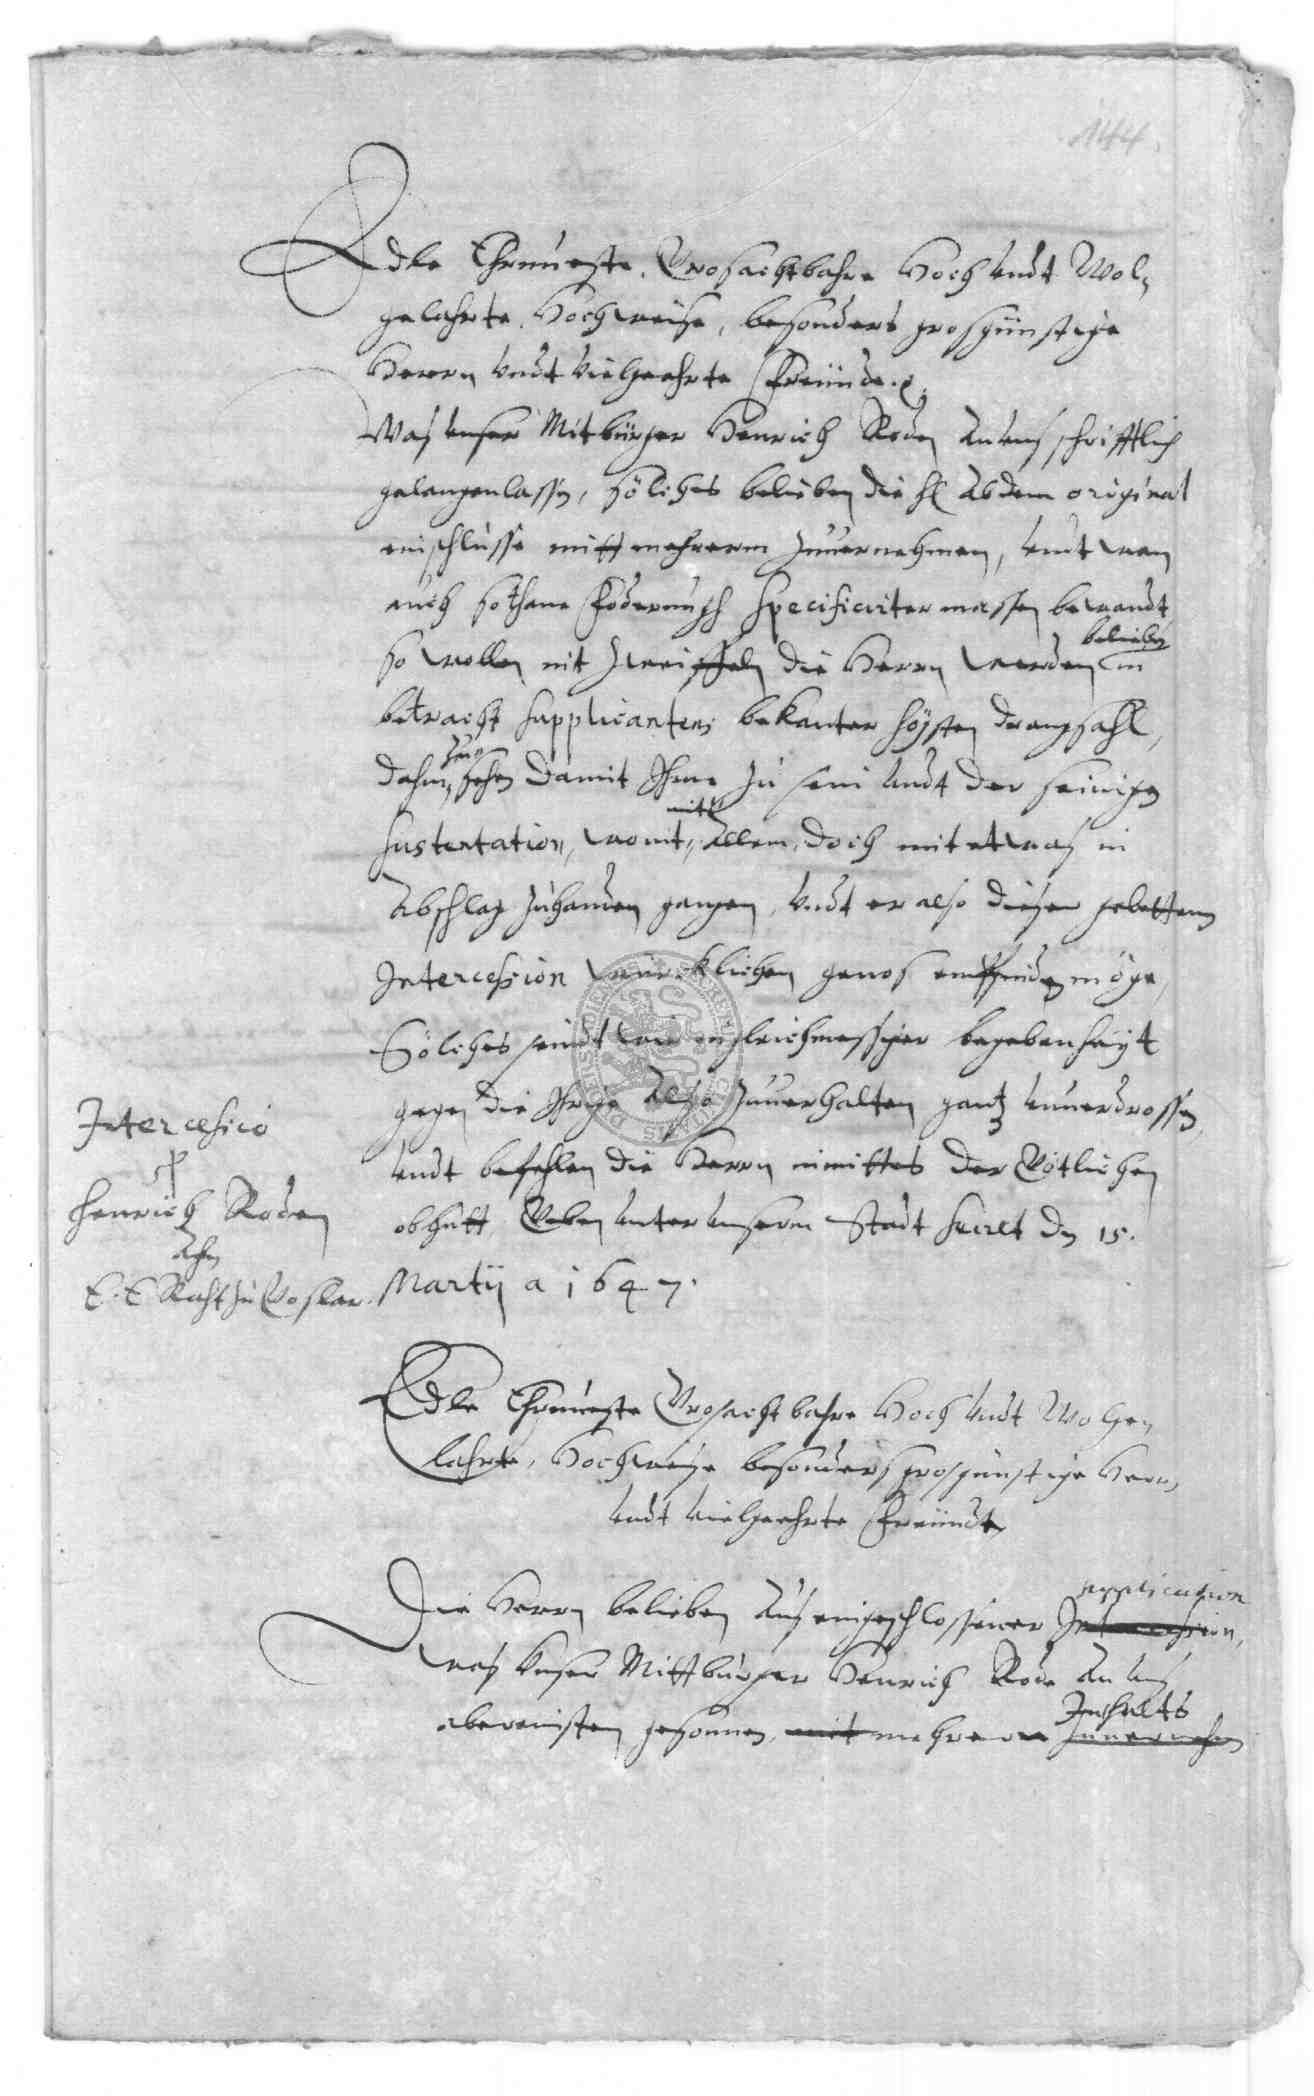 144.
Edle Ehrnueste, Grosachtbahre Hoch undt Wol¬
gelahrte, Hochweise, besonders grosgünstige
Herrn undt vielgeehrte Freünde.
Was unser Mitbürger Henrich Roden an uns schrifftlich
gelangen lassen, sölches belieben die h. ab dem original
einschlusse mitt mehrerm zuuernehmen, undt wan
auch sothane Foderungh specificirter massen bewandt
belieben
so wollen nit zweiffelen die Herrn werden in
betracht supplicanten bekanter högsten drangsahl,
zu
dahin sehen damit Ihme zu sein undt der seinigen
mitt
sustentation, wo nit allem, doch mit etwas in
Abschlag zuhanden gangen, undt er also dieser gebettenen
Intercession würcklichen genos empfinden möge,
Sölches seindt wir in gleichmessiger begebenheyt
gegen die Ihrige also zuuerhalten gantz unuerdrossen,
undt befehlen die Herrn inmittes der Götlichen
obhutt, Geben unter unserm Stadt Secret den 15.
Martij a 1647.
Intercessio
p
Henrich Roden
Ahn
E. E. Raht zu Goslar.
Edle Ehrnueste Grosachtbahre Hoch undt Wolge¬
lahrte, Hochweise besonders grosgünstige Herrn
undt vielgeehrte Freündt
Die Herrn belieben aus eingeschlossener Intercession,
supplication
was unser Mittbürger Henrich Rode an uns
Inhalts
abereinsten gesonnen, mit mehrerm zuuernehmen